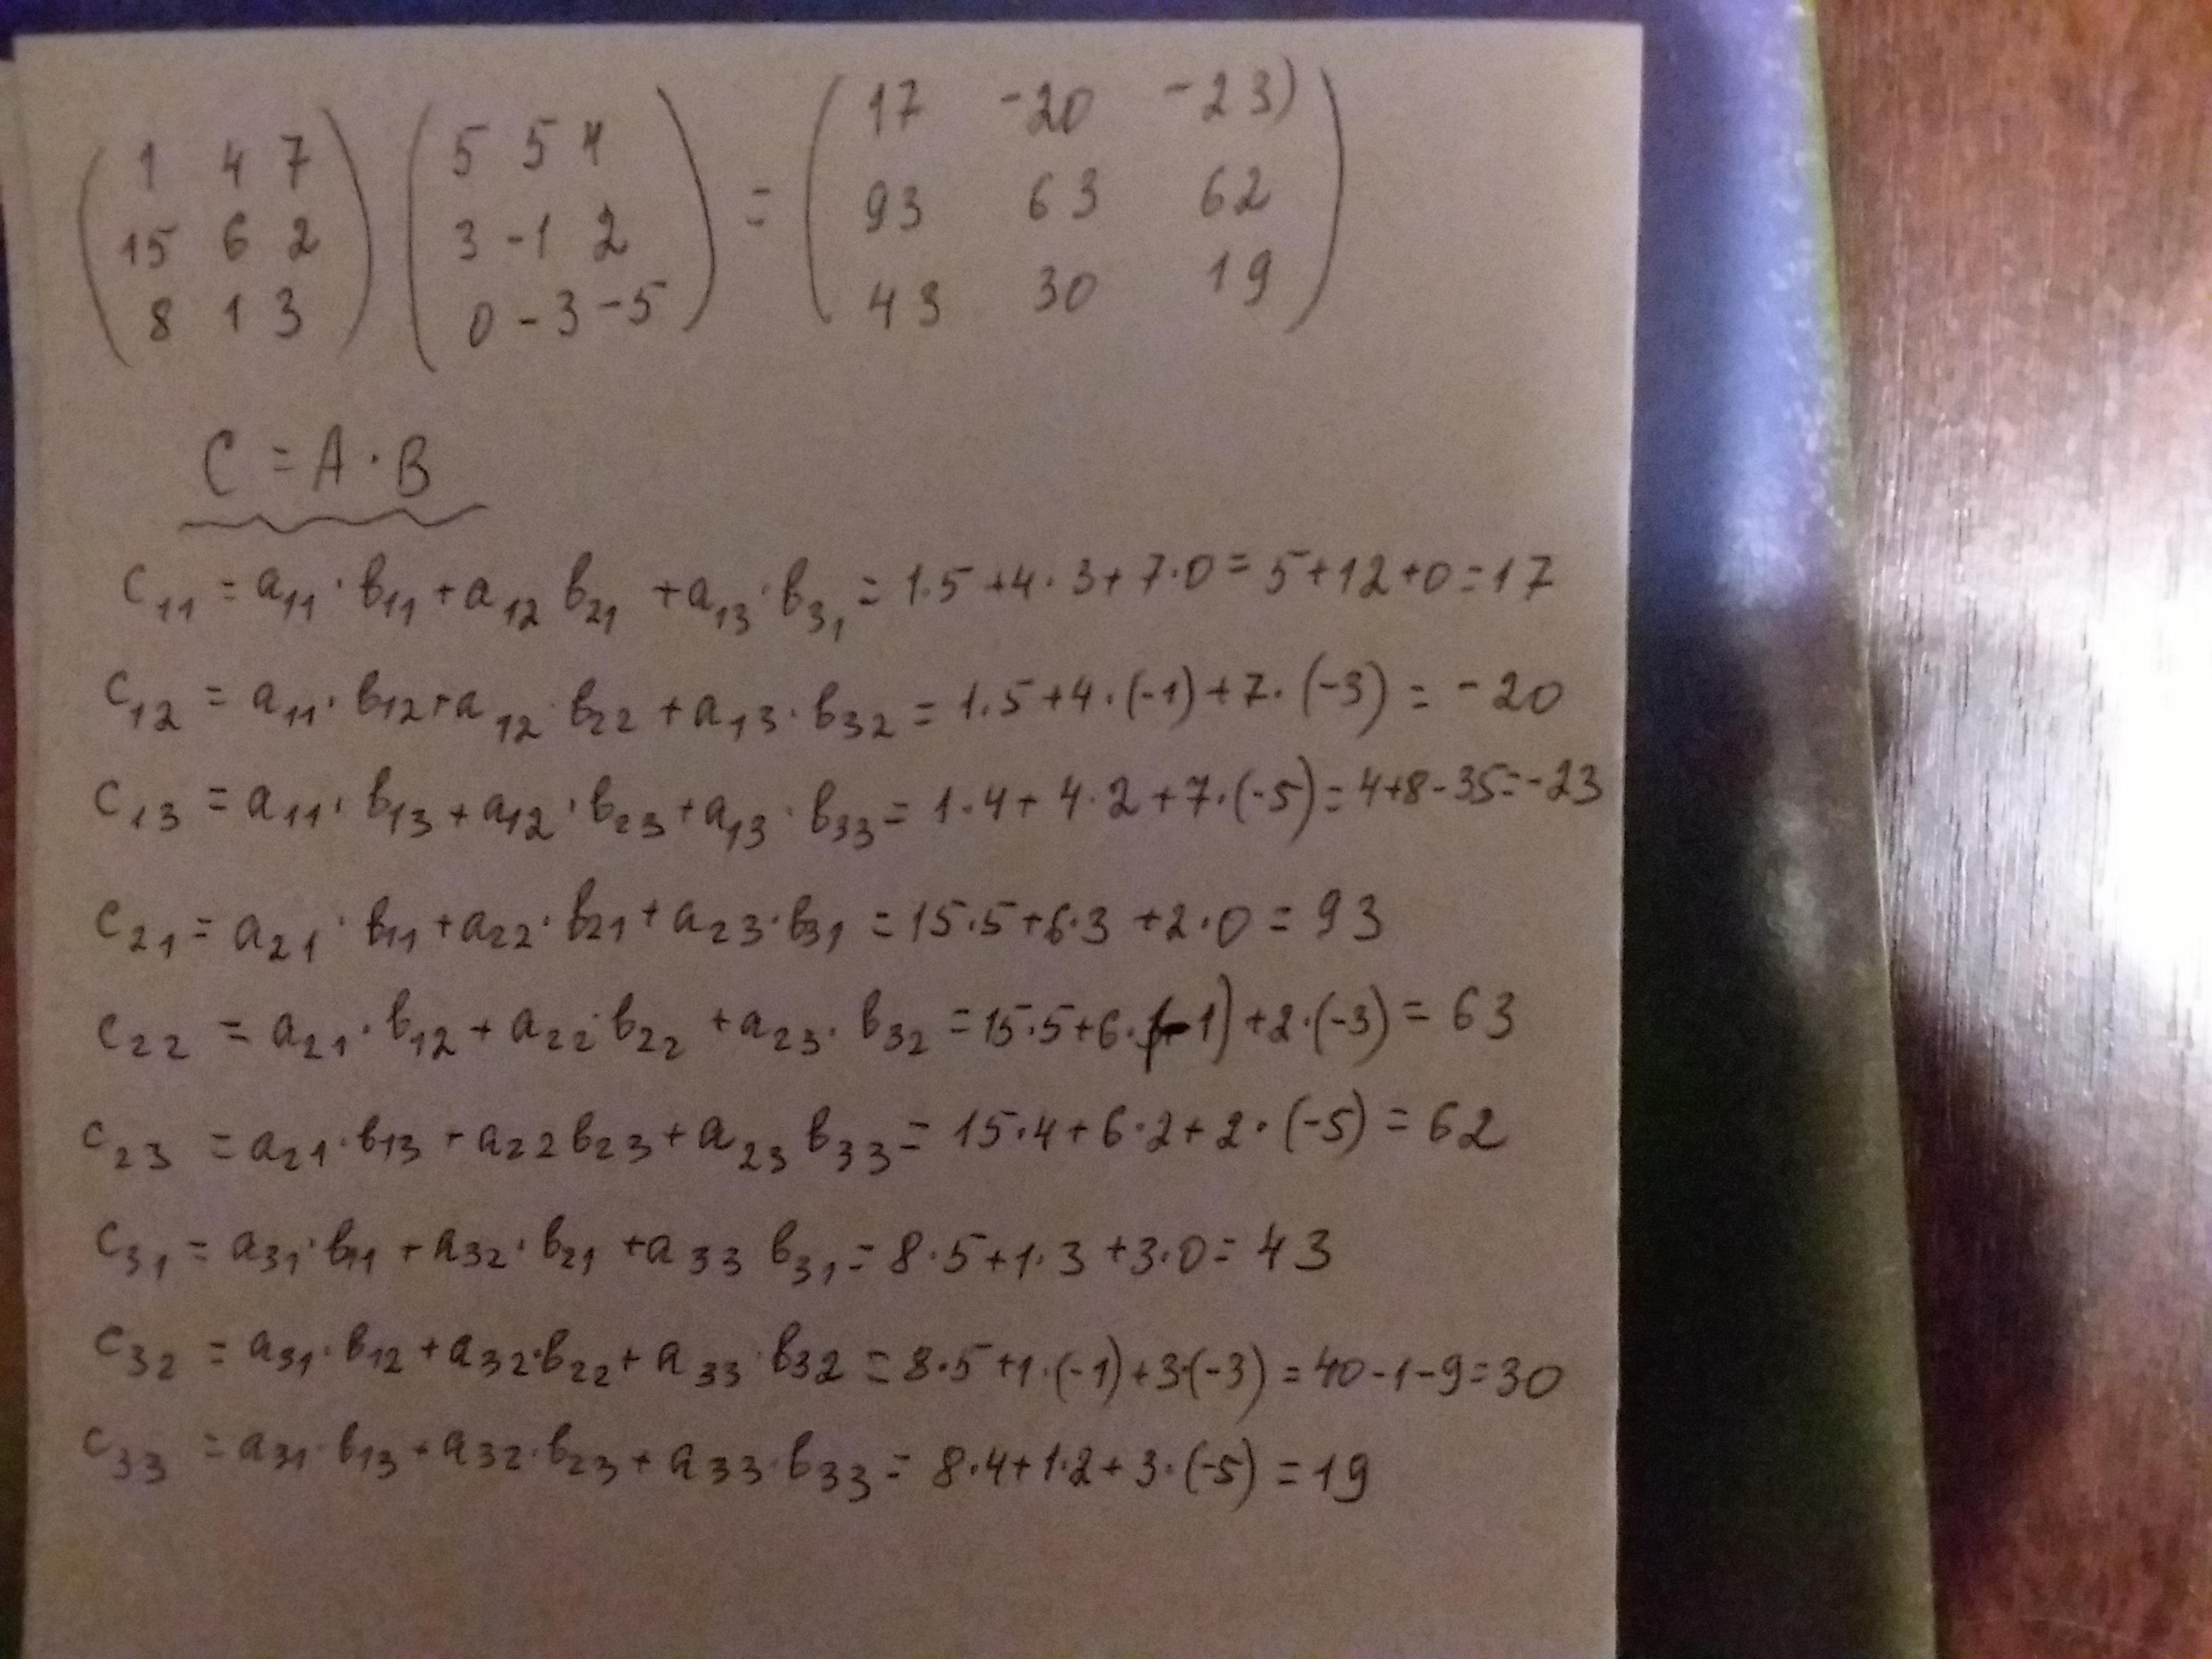 ( 1 4 7 ) ( 5 5 4 ) = ( 17 -20 -23) )
( 15 6 2 ) ( 3 -1 2 ) ( 93 63 62 )
( 8 1 3 ) ( 0 -3 -5 ) ( 43 30 19 )
C = A · B
c11 = a11 · b11 + a12 b21 + a13 · b31 = 1·5 + 4·3 + 7·0 = 5+12+0 = 17
c12 = a11 · b12 + a12 · b22 + a13 · b32 = 1·5 + 4·(-1) + 7·(-3) = -20
c13 = a11 · b13 + a12 · b23 + a13 · b33 = 1·4 + 4·2 + 7·(-5) = 4+8-35 = -23
c21 = a21 · b11 + a22 · b21 + a23 · b31 = 15·5 + 6·3 + 2·0 = 93
c22 = a21 · b12 + a22 · b22 + a23 · b32 = 15·5 + 6·(-1) + 2·(-3) = 63
c23 = a21 · b13 + a22 b23 + a23 b33 = 15·4 + 6·2 + 2·(-5) = 62
c31 = a31 · b11 + a32 · b21 + a33 b31 = 8·5 + 1·3 + 3·0 = 43
c32 = a31 · b12 + a32 · b22 + a33 · b32 = 8·5 + 1·(-1) + 3·(-3) = 40-1-9 = 30
c33 = a31 · b13 + a32 · b23 + a33 · b33 = 8·4 + 1·2 + 3·(-5) = 19